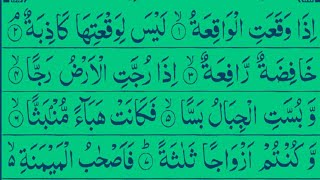 اِذَا وَقَعَتِ الْوَاقِعَةُ ۙ﴿۱﴾ لَیْسَ لِوَقْعَتِهَا كَاذِبَةٌ ۘ﴿۲﴾
خَافِضَةٌ رَّافِعَةٌ ۙ﴿۳﴾ اِذَا رُجَّتِ الْاَرْضُ رَجًّا ۙ﴿۴﴾
وَّ بُسَّتِ الْجِبَالُ بَسًّا ۙ﴿۵﴾ فَكَانَتْ هَبَآءً مُّنْۢبَثًّا ۙ﴿۶﴾
وَّ كُنْتُمْ اَزْوَاجًا ثَلٰثَةً ؕ﴿۷﴾ فَاَصْحٰبُ الْمَیْمَنَةِ ۙ۬